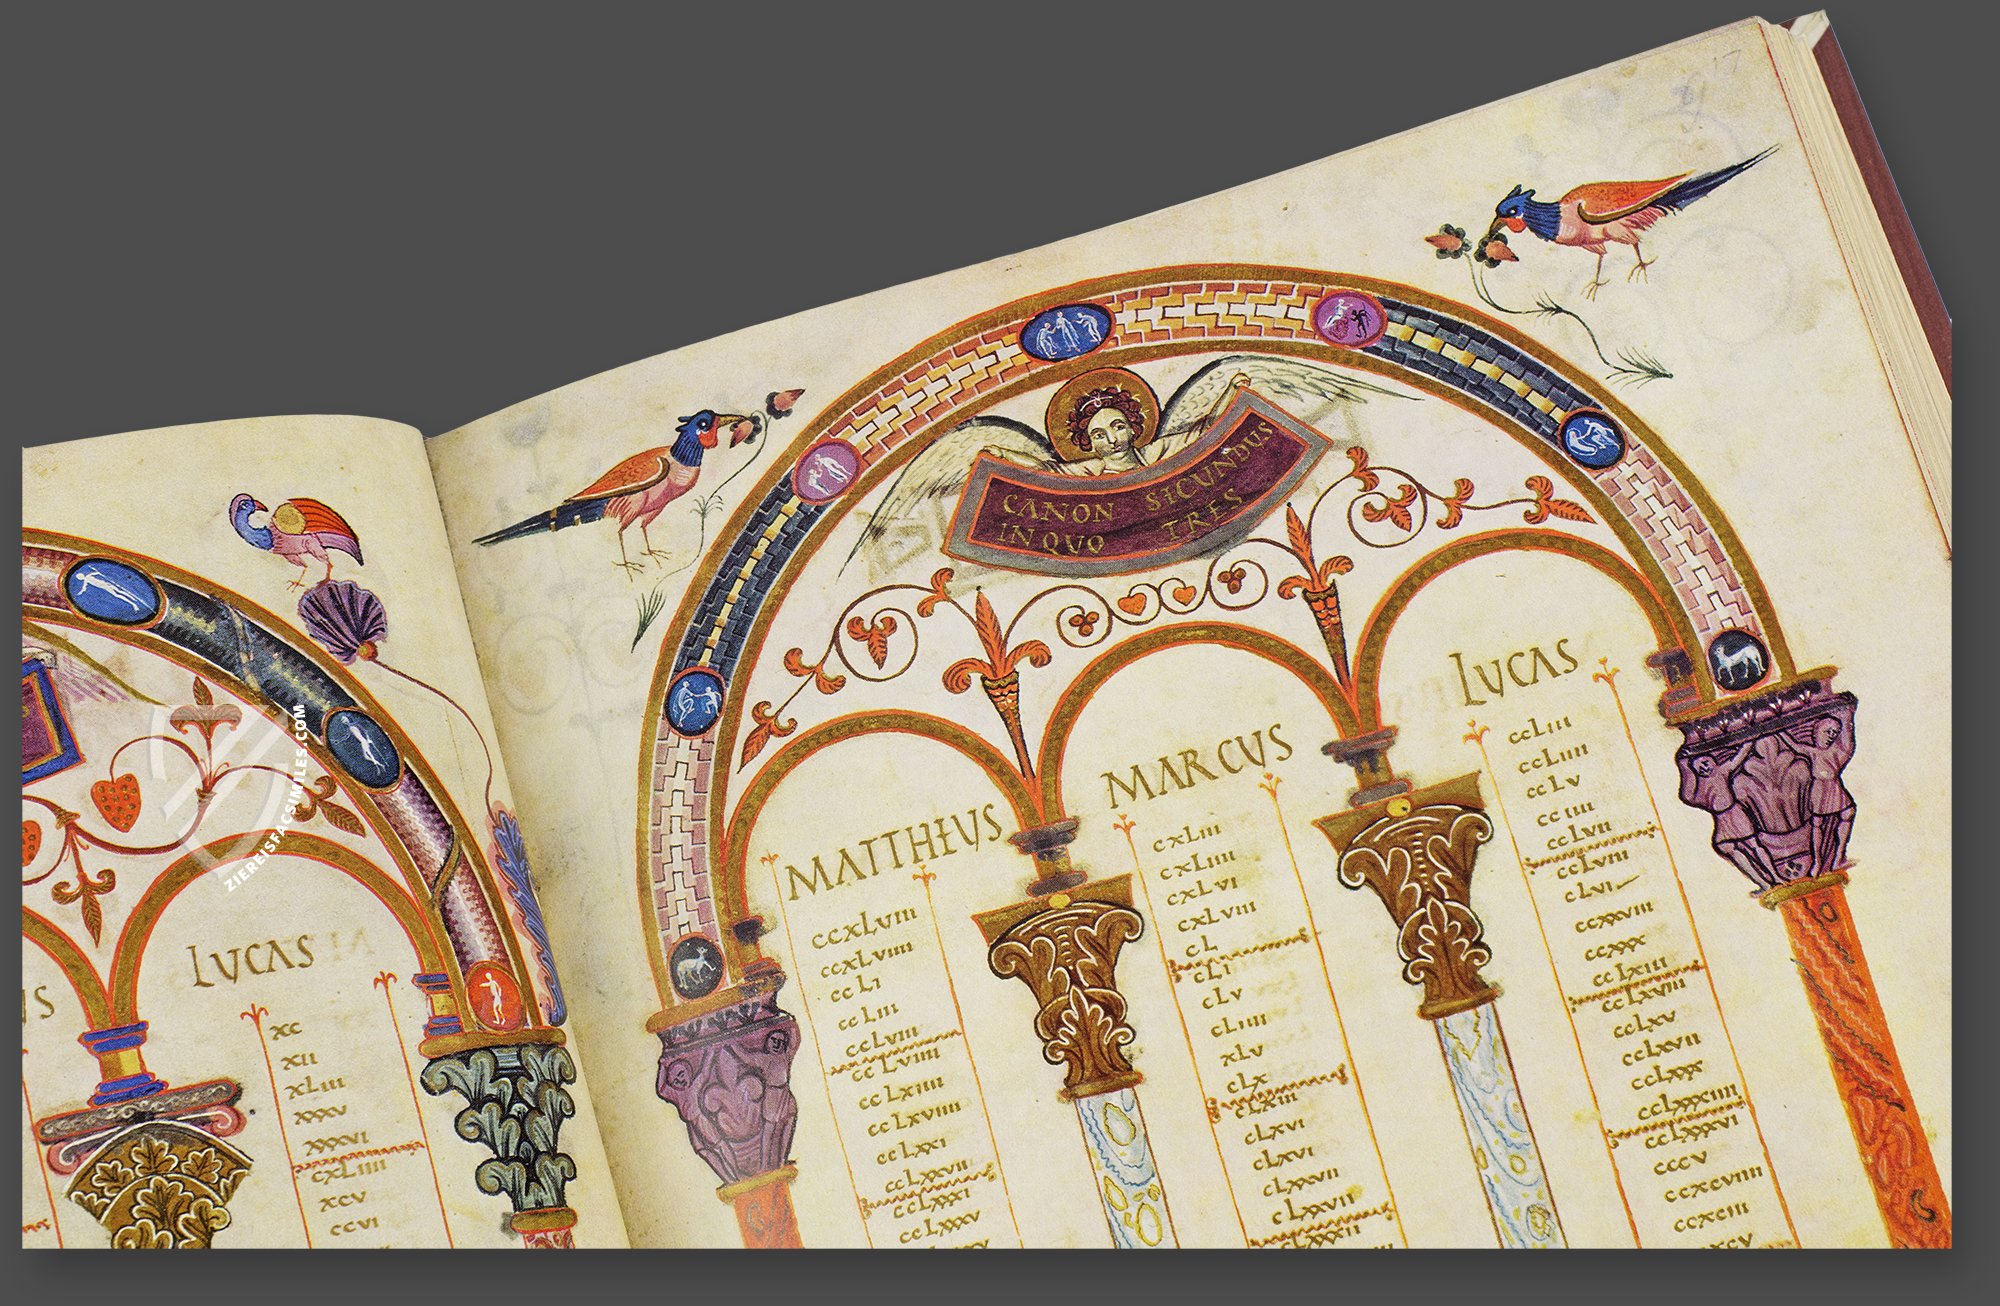 US
LUCAS
xc
xii
xLiii
xxxv
xxxvi
cxLiiii
xcv
ccvi
ZIEREISFACSIMILES.COM
CANON SECUNDUS
IN QUO TRES
MATTHEUS
ccxLviii
ccxLviiii
ccLi
ccLiii
ccLviii
ccLviiii
ccLxiiii
ccLxviiii
ccLxxi
ccLxxvii
ccLxxxi
ccLxxxv
MARCUS
cxLiii
cxLiiii
cxLvi
cxLviii
cL
cLi
cLv
cLiiii
xLv
cLx
cLxiii
cLxvi
cLxvi
cLxxvii
cLxxvii
cLxxxii
LUCAS
ccLiii
ccLiiii
ccLv
cciiii
ccLvii
ccLviii
cLvi
ccxxviii
ccxxx
ccLxiii
ccLxviii
ccLxv
ccLxvii
ccLxxx
ccLxxxiiii
ccLxxxvi
cccv
ccxcviiii
ccxciii